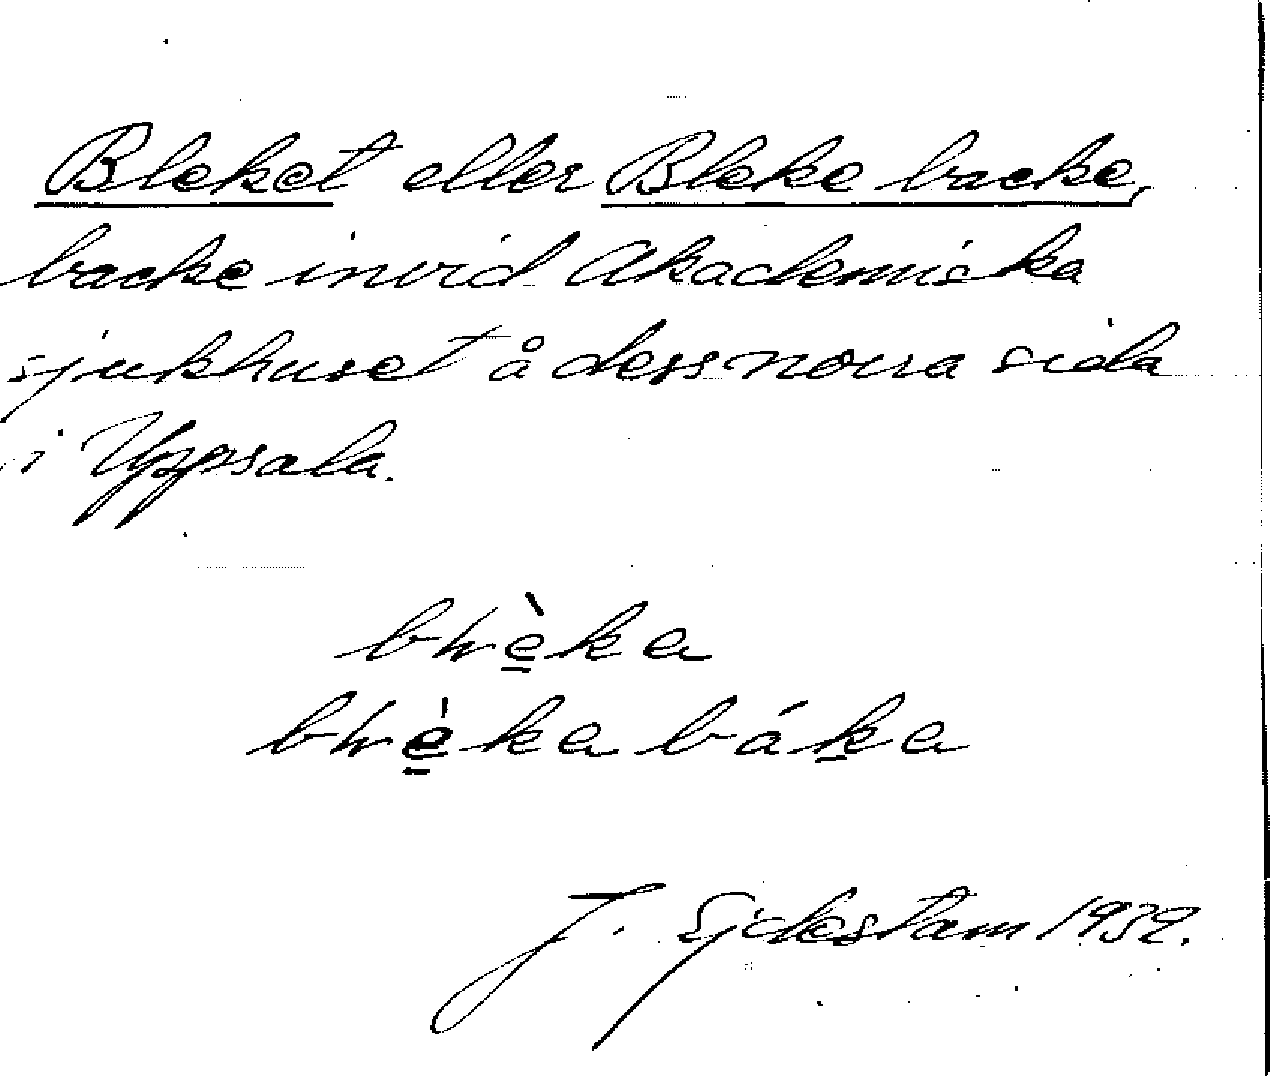 Bleket eller Bleke backe,
backe invid Akademiska
sjukhuset å dess norra sida
i Uppsala.
blẹ̀ka
blẹ̀ka báḵa
J. 1932.